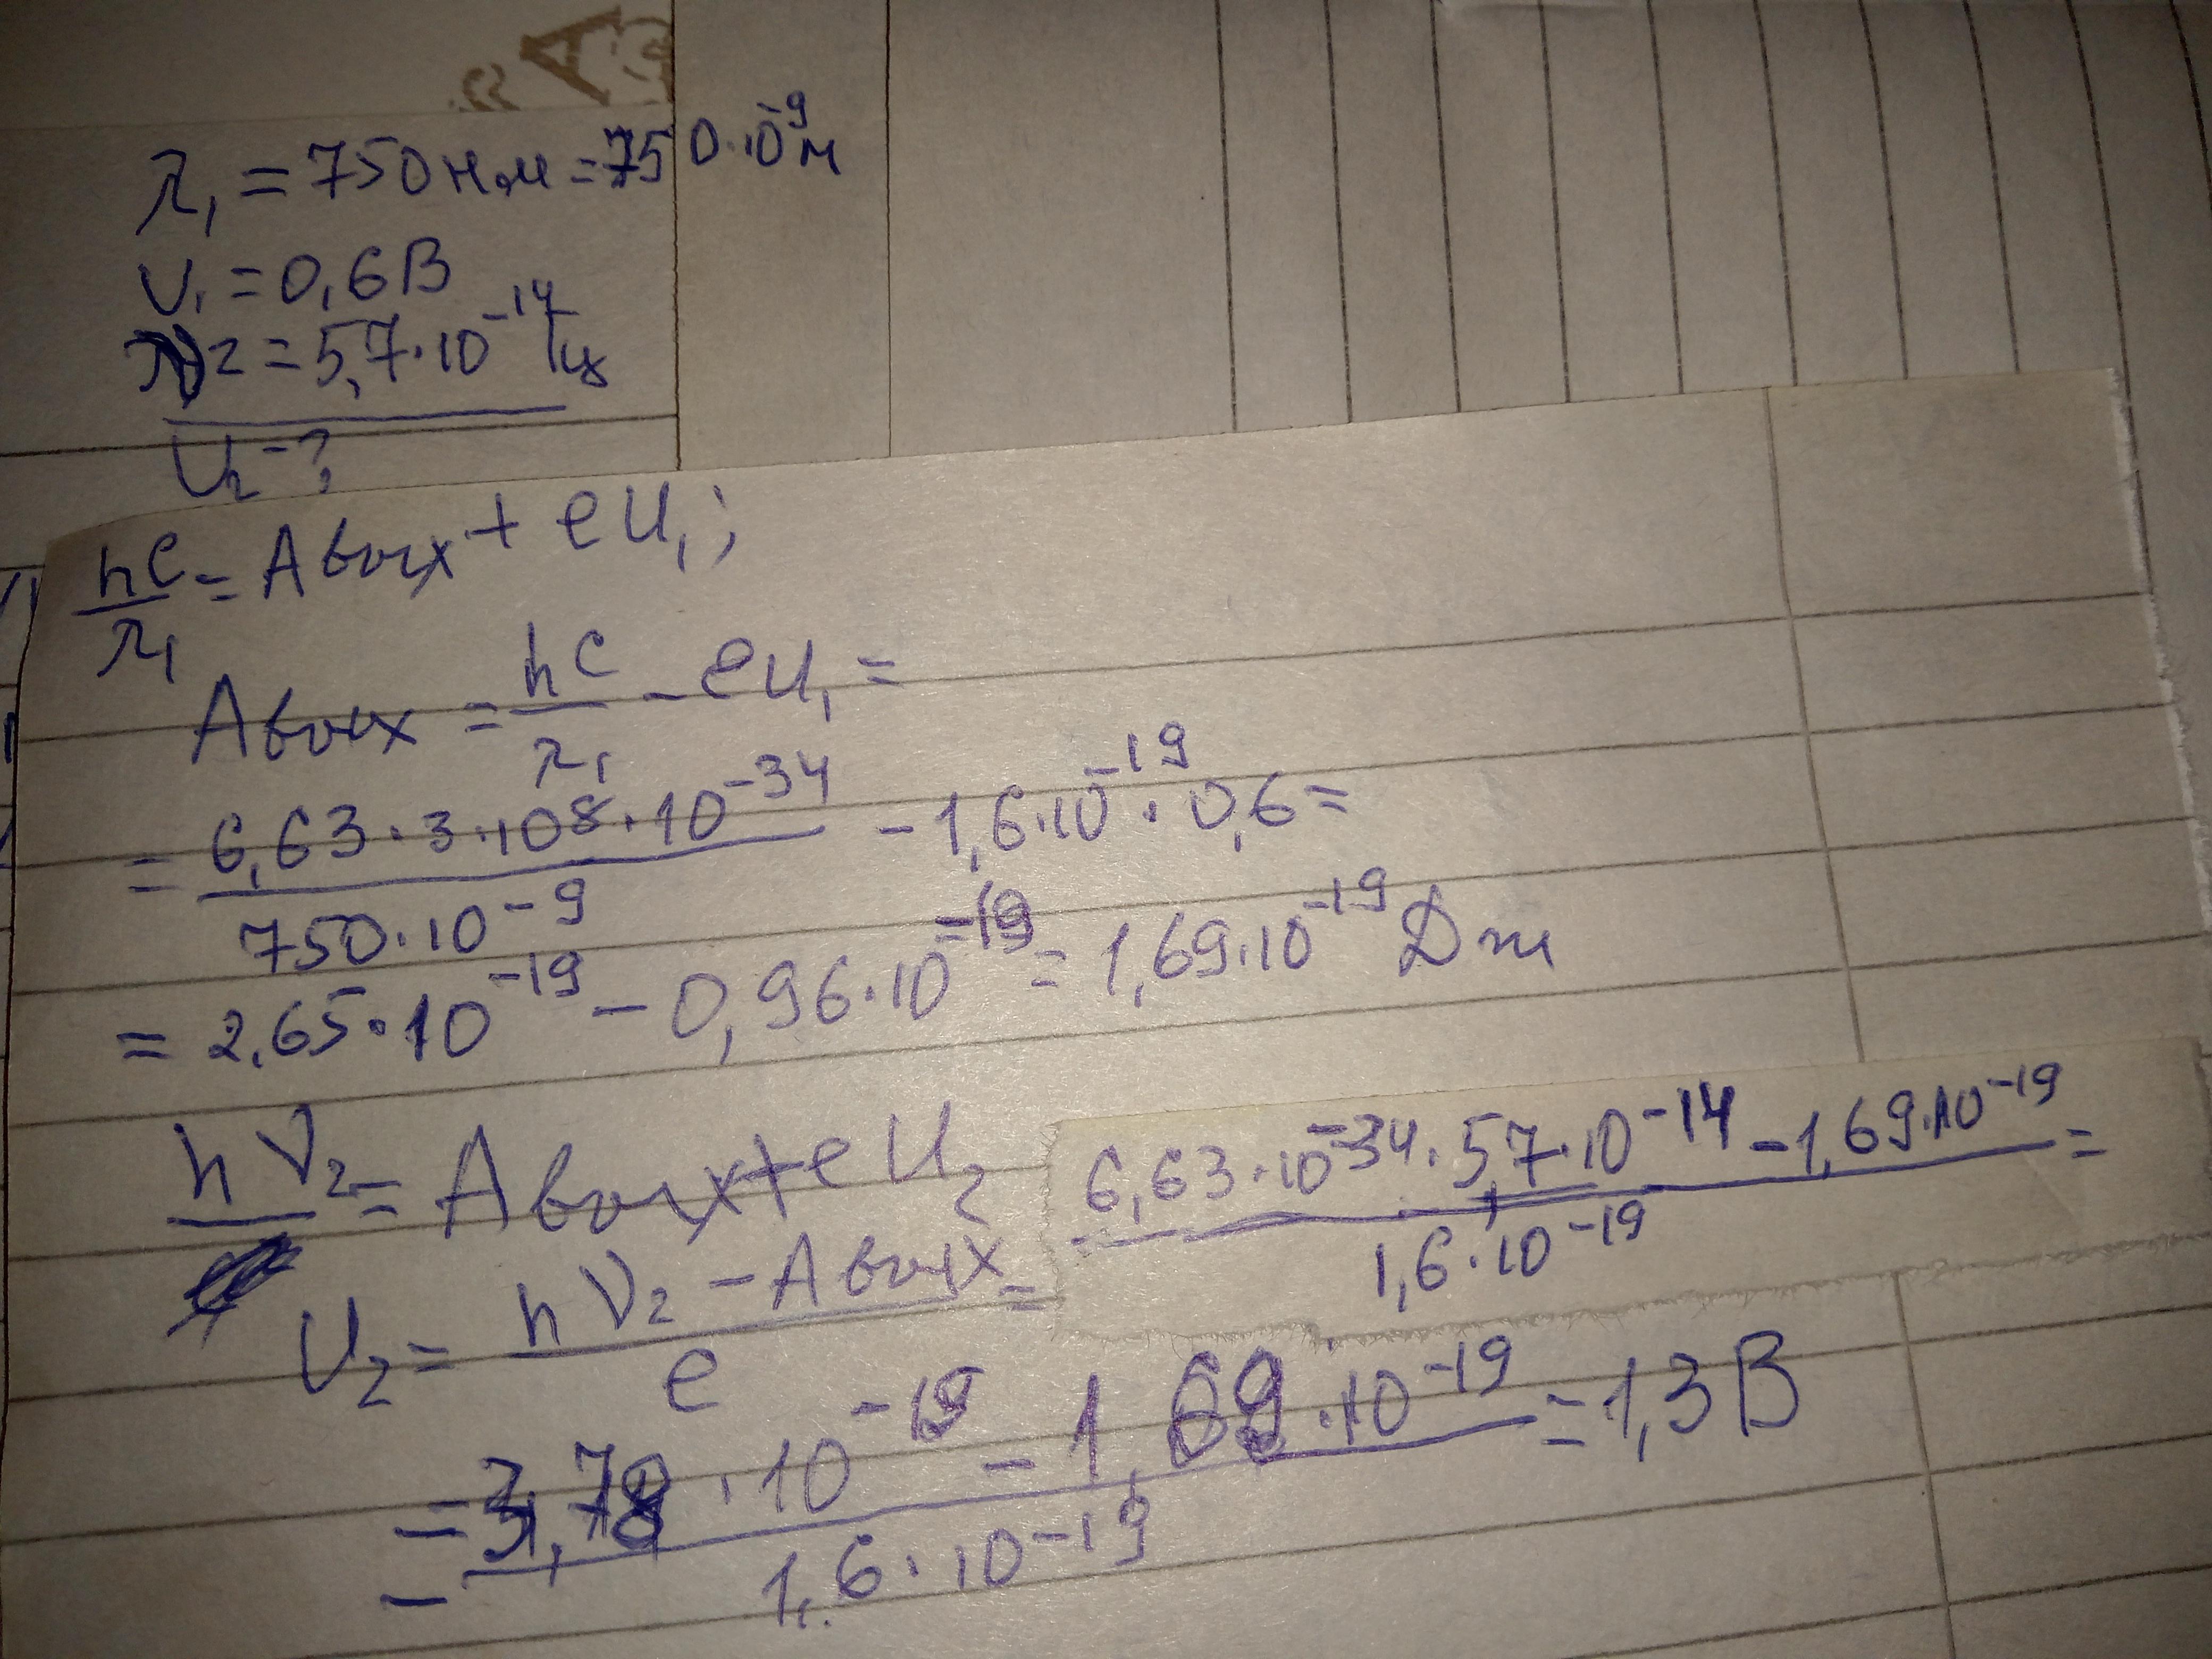 λ₁ = 750 нм = 750·10⁻⁹ м
U₁ = 0,6 В
ν2 = 5,7·10⁻¹⁴ Гц
U₂ - ?
hc/λ₁ = Aвых + eU₁;
Aвых = hc/λ₁ - eU₁ =
= 6,63·3·10⁸·10⁻³⁴/750·10⁻⁹ - 1,6·10⁻¹⁹·0,6 =
= 2,65·10⁻¹⁹ - 0,96·10⁻¹⁹ = 1,69·10⁻¹⁹ Дж
hν₂ = Aвых + eU₂
U₂ = hν₂ - Aвых/e = 6,63·10⁻³⁴·5,7·10⁻¹⁴ - 1,69·10⁻¹⁹/1,6·10⁻¹⁹ =
= 3,78·10⁻¹⁹ - 1,69·10⁻¹⁹/1,6·10⁻¹⁹ = 1,3 В